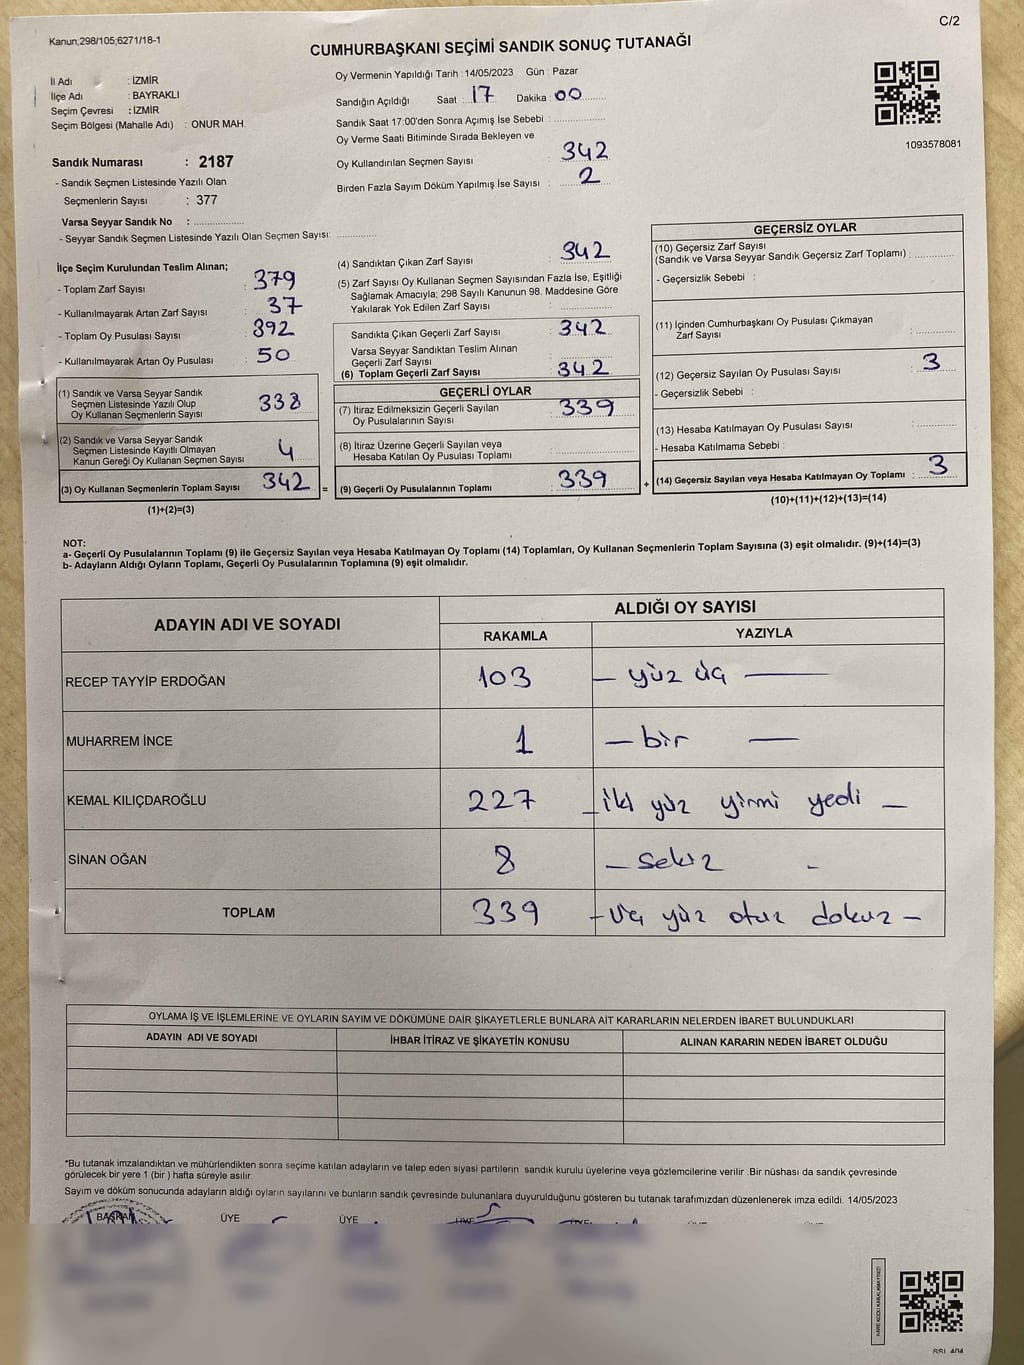 C/2
Kanun;298/105;6271/18-1
CUMHURBAŞKANI SEÇİMİ SANDIK SONUÇ TUTANAĞI
İl Adı : İZMİR
İlçe Adı : BAYRAKLI
Seçim Çevresi : İZMİR
Seçim Bölgesi (Mahalle Adı) : ONUR MAH.
Sandık Numarası : 2187
- Sandık Seçmen Listesinde Yazılı Olan
Seçmenlerin Sayısı : 377
Varsa Seyyar Sandık No :
- Seyyar Sandık Seçmen Listesinde Yazılı Olan Seçmen Sayısı:
Oy Vermenin Yapıldığı Tarih : 14/05/2023 Gün : Pazar
Sandığın Açıldığı Saat : 17 Dakika : 00
Sandık Saat 17:00'den Sonra Açımış İse Sebebi :
Oy Verme Saati Bitiminde Sırada Bekleyen ve
Oy Kullandırılan Seçmen Sayısı : 342
Birden Fazla Sayım Döküm Yapılmış İse Sayısı : 2
1093578081
İlçe Seçim Kurulundan Teslim Alınan;
- Toplam Zarf Sayısı : 379
- Kullanılmayarak Artan Zarf Sayısı : 37
- Toplam Oy Pusulası Sayısı : 392
- Kullanılmayarak Artan Oy Pusulası : 50
(1) Sandık ve Varsa Seyyar Sandık
Seçmen Listesinde Yazılı Olup
Oy Kullanan Seçmenlerin Sayısı : 338
(2) Sandık ve Varsa Seyyar Sandık
Seçmen Listesinde Kayıtlı Olmayan
Kanun Gereği Oy Kullanan Seçmen Sayısı : 4
(3) Oy Kullanan Seçmenlerin Toplam Sayısı : 342 =
(1)+(2)=(3)
(4) Sandıktan Çıkan Zarf Sayısı : 342
(5) Zarf Sayısı Oy Kullanan Seçmen Sayısından Fazla İse, Eşitliği
Sağlamak Amacıyla; 298 Sayılı Kanunun 98. Maddesine Göre
Yakılarak Yok Edilen Zarf Sayısı :
Sandıkta Çıkan Geçerli Zarf Sayısı : 342
Varsa Seyyar Sandıktan Teslim Alınan
Geçerli Zarf Sayısı :
(6) Toplam Geçerli Zarf Sayısı : 342
GEÇERLİ OYLAR
(7) İtiraz Edilmeksizin Geçerli Sayılan
Oy Pusulalarının Sayısı : 339
(8) İtiraz Üzerine Geçerli Sayılan veya
Hesaba Katılan Oy Pusulası Toplamı :
(9) Geçerli Oy Pusulalarının Toplamı : 339 +
GEÇERSİZ OYLAR
(10) Geçersiz Zarf Sayısı
(Sandık ve Varsa Seyyar Sandık Geçersiz Zarf Toplamı) :
- Geçersizlik Sebebi :
(11) İçinden Cumhurbaşkanı Oy Pusulası Çıkmayan
Zarf Sayısı :
(12) Geçersiz Sayılan Oy Pusulası Sayısı : 3
- Geçersizlik Sebebi :
(13) Hesaba Katılmayan Oy Pusulası Sayısı :
- Hesaba Katılmama Sebebi :
(14) Geçersiz Sayılan veya Hesaba Katılmayan Oy Toplamı : 3
(10)+(11)+(12)+(13)=(14)
NOT:
a- Geçerli Oy Pusulalarının Toplamı (9) ile Geçersiz Sayılan veya Hesaba Katılmayan Oy Toplamı (14) Toplamları, Oy Kullanan Seçmenlerin Toplam Sayısına (3) eşit olmalıdır. (9)+(14)=(3)
b- Adayların Aldığı Oyların Toplamı, Geçerli Oy Pusulalarının Toplamına (9) eşit olmalıdır.
ADAYIN ADI VE SOYADI
ALDIĞI OY SAYISI
RAKAMLA YAZIYLA
RECEP TAYYİP ERDOĞAN 103 — yüz üç —
MUHARREM İNCE 1 — bir —
KEMAL KILIÇDAROĞLU 227 - iki yüz yirmi yedi -
SİNAN OĞAN 8 - sekiz -
TOPLAM 339 - üç yüz otuz dokuz -
OYLAMA İŞ VE İŞLEMLERİNE VE OYLARIN SAYIM VE DÖKÜMÜNE DAİR ŞİKAYETLERLE BUNLARA AİT KARARLARIN NELERDEN İBARET BULUNDUKLARI
ADAYIN ADI VE SOYADI İHBAR İTİRAZ VE ŞİKAYETİN KONUSU ALINAN KARARIN NEDEN İBARET OLDUĞU
*Bu tutanak imzalandıktan ve mühürlendikten sonra seçime katılan adayların ve talep eden siyasi partilerin sandık kurulu üyelerine veya gözlemcilerine verilir .Bir nüshası da sandık çevresinde
görülecek bir yere 1 (bir ) hafta süreyle asılır.
Sayım ve döküm sonucunda adayların aldığı oyların sayılarını ve bunların sandık çevresinde bulunanlara duyurulduğunu gösteren bu tutanak tarafımızdan düzenlenerek imza edildi. 14/05/2023
BAŞKAN ÜYE ÜYE ÜYE ÜYE
KARE KODU KARALAMAYINIZ!